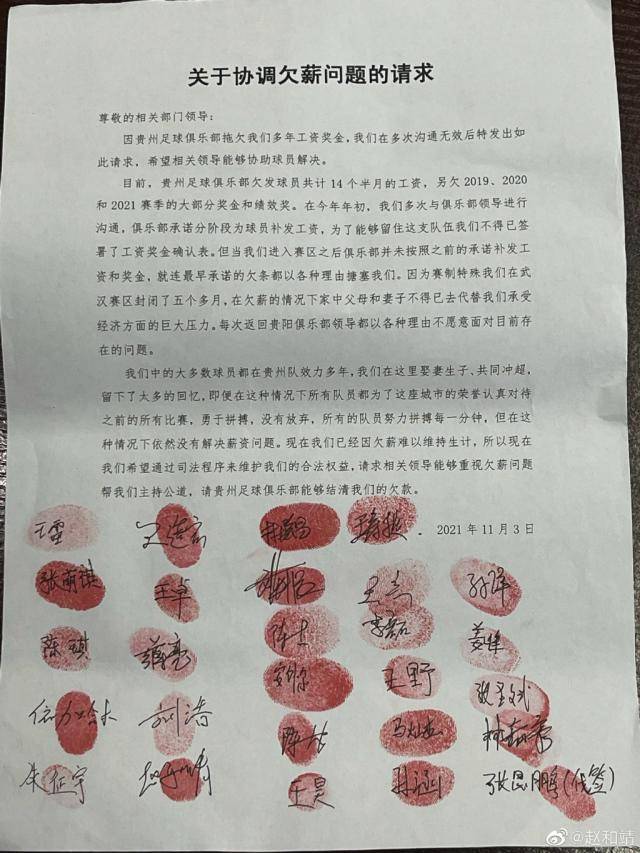 关于协调欠薪问题的请求
尊敬的相关部门领导：
因贵州足球俱乐部拖欠我们多年工资奖金，我们在多次沟通无效后特发出如
此请求，希望相关领导能够协助球员解决。
目前，贵州足球俱乐部欠发球员共计 14 个半月的工资，另欠 2019、2020
和 2021 赛季的大部分奖金和绩效奖。在今年年初，我们多次与俱乐部领导进行
沟通，俱乐部承诺分阶段为球员补发工资，为了能够留住这支队伍我们不得已签
署了工资奖金确认表。但当我们进入赛区之后俱乐部并未按照之前的承诺补发工
资和奖金，就连最早承诺的欠条都以各种理由搪塞我们。因为赛制特殊我们在武
汉赛区封闭了五个多月，在欠薪的情况下家中父母和妻子不得已去代替我们承受
经济方面的巨大压力。每次返回贵阳俱乐部领导都以各种理由不愿意面对目前存
在的问题。
我们中的大多数球员都在贵州队效力多年，我们在这里娶妻生子、共同冲超，
留下了太多的回忆，即便在这种情况下所有队员都为了这座城市的荣誉认真对待
之前的所有比赛，勇于拼搏，没有放弃，所有的队员努力拼搏每一分钟，但在这
种情况下依然没有解决薪资问题。现在我们已经因欠薪难以维持生计，所以现在
我们希望通过司法程序来维护我们的合法权益，请求相关领导能够重视欠薪问题
帮我们主持公道，请贵州足球俱乐部能够结清我们的欠款。
2021 年 11 月 3 日
张萌琪 王卓
陈琪 蒋亮 陈杰 李磊
王野
刘涛
朱征宇 王昊 张昆鹏（代签）
@赵和靖